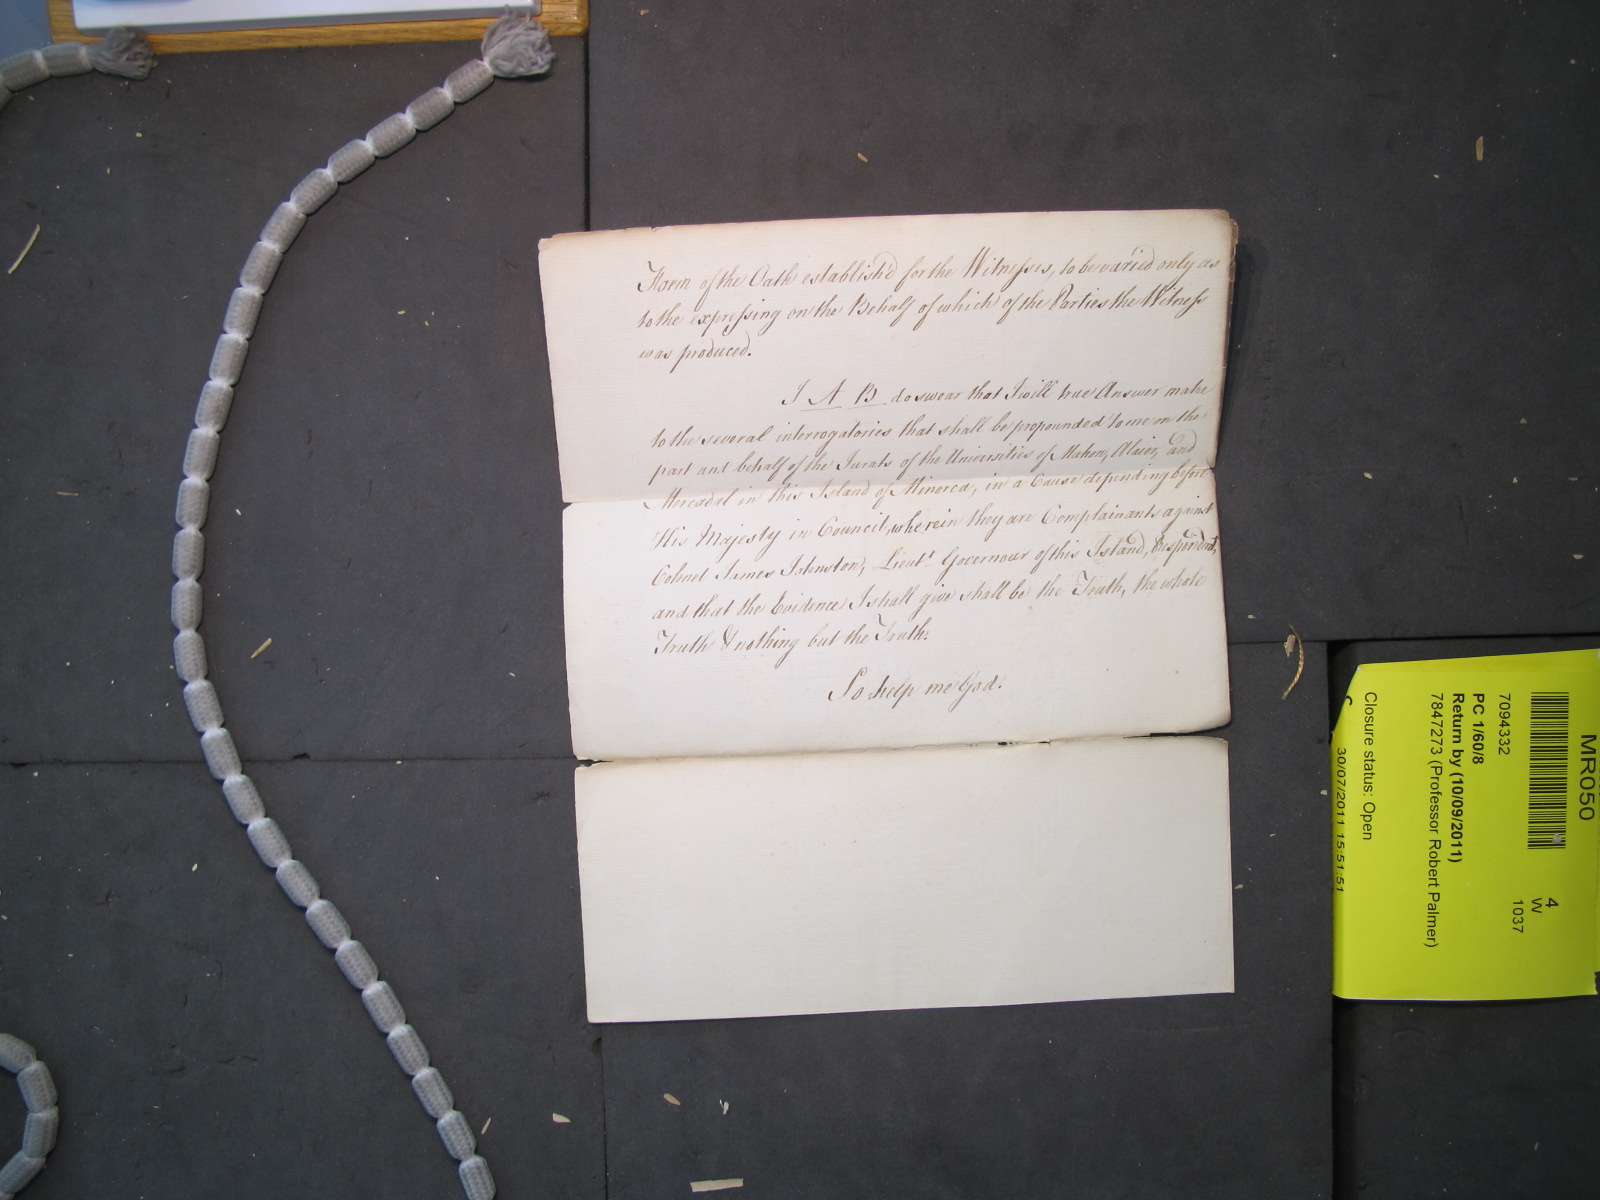 Form of the Oath establish'd for the Witnesses, to be varied only as
to the expressing on the Behalf of which of the Parties the Witness
was produced.
I A B do swear that I will true Answer make
to the several interrogatories that shall be propounded to me on the
part and behalf of the Jurats of the Universities of Mahon, Alaior, and
Mercadal in this Island of Minorca, in a Cause depending before
His Majesty in Council, wherein they are Complainants against
Colonel James Johnston, Lieut.t Governour of this Island, Respondent,
and that the Evidence I shall give shall be the Truth, the whole
Truth & nothing but the Truth.
So help me God.
MR050
7094332
PC 1/60/8
Return by (10/09/2011)
7847273 (Professor Robert Palmer)
Closure status: Open
30/07/2011 15:51:51
4
W
1037